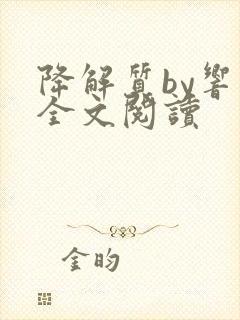 降解質by響
全文閱讀
金昀